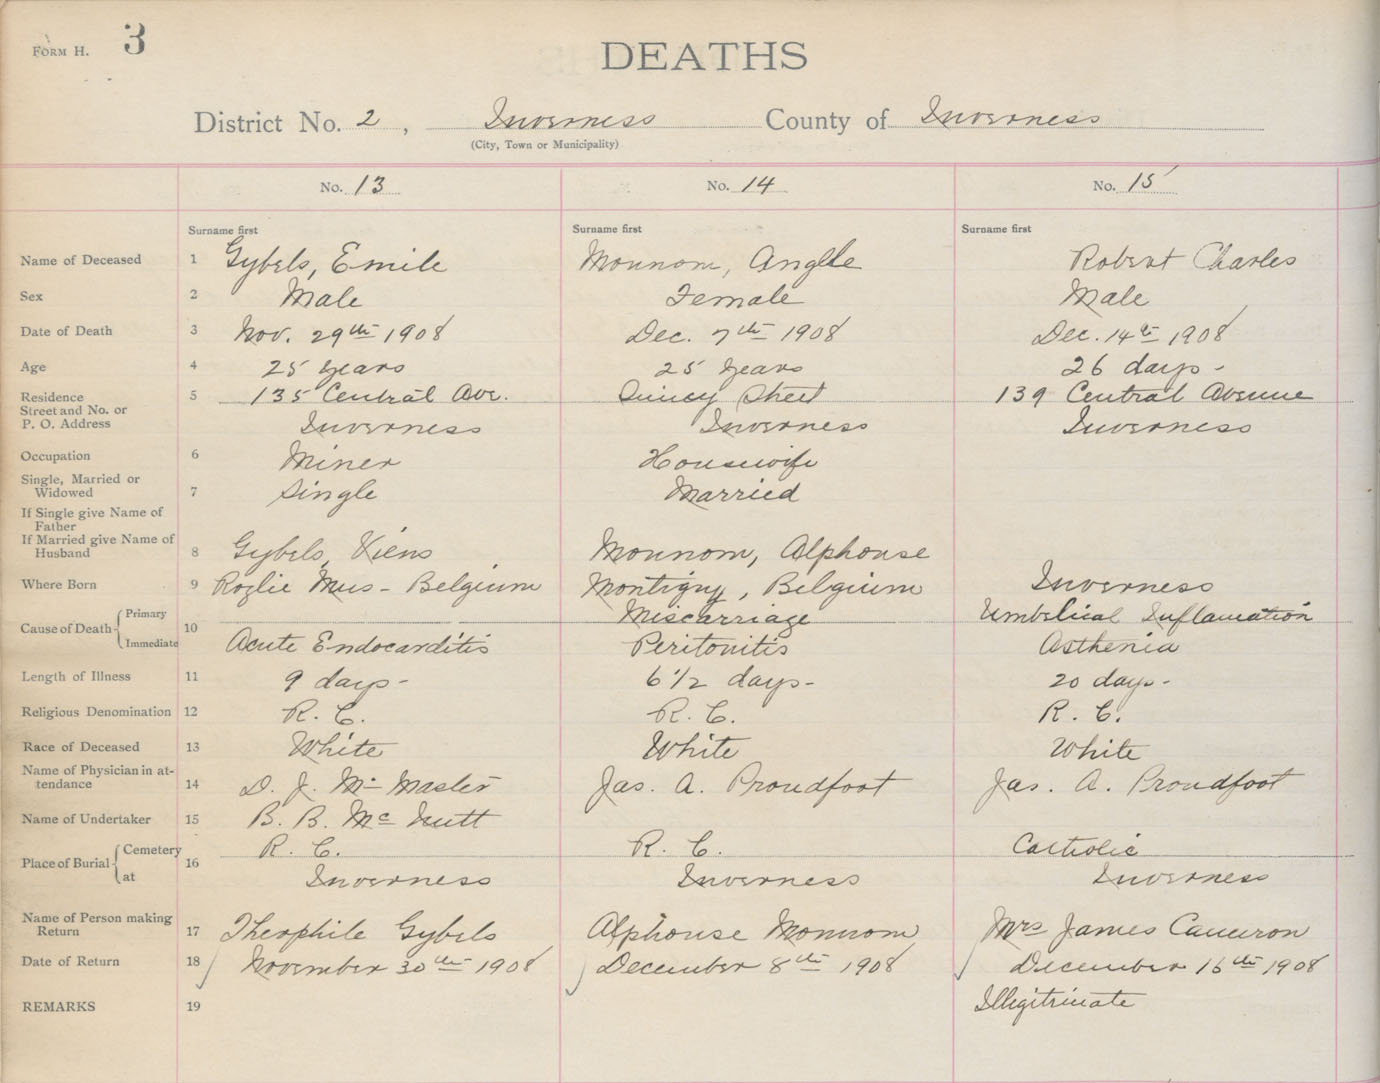 FORM H. 3
DEATHS
District No. 2, Inverness County of Inverness
(City, Town or Municipality)
No. 13 No. 14 No. 15
Surname first Surname first Surname first
Name of Deceased 1 Gybels, Emile Mounom, Angèle Robert Charles
Sex 2 Male Female Male
Date of Death 3 Nov. 29th 1908 Dec. 7th 1908 Dec. 14th 1908
Age 4 25 years 25 years 26 days -
Residence 5 135 Central Ave. Street 139 Central Avenue
Street and No. or
P. O. Address Inverness Inverness Inverness
Occupation 6 Miner Housewife
Single, Married or
Widowed 7 Single Married
If Single give Name of
Father
If Married give Name of
Husband 8 Gybels, Mounom, Alphonse
Where Born 9 - Belgium Montigny, Belgium Inverness
Cause of Death 10 Primary Miscarriage Umbelical Inflamation
Immediate Acute Endocarditis Peritonitis Asthenia
Length of Illness 11 9 days - 6 1/2 days - 20 days -
Religious Denomination 12 R. C. R. C. R. C.
Race of Deceased 13 White White White
Name of Physician in at-
tendance 14 D. J. Mc Master Jas. A. Proudfoot Jas. A. Proudfoot
Name of Undertaker 15 B. B. Mc Nutt
Place of Burial 16 Cemetery R. C. R. C. Catholic
at Inverness Inverness Inverness
Name of Person making
Return 17 Theophile Gybels Alphonse Mounom Mrs James Cameron
Date of Return 18 November 30th 1908 December 8th 1908 December 16th 1908
REMARKS 19 Illigitimate